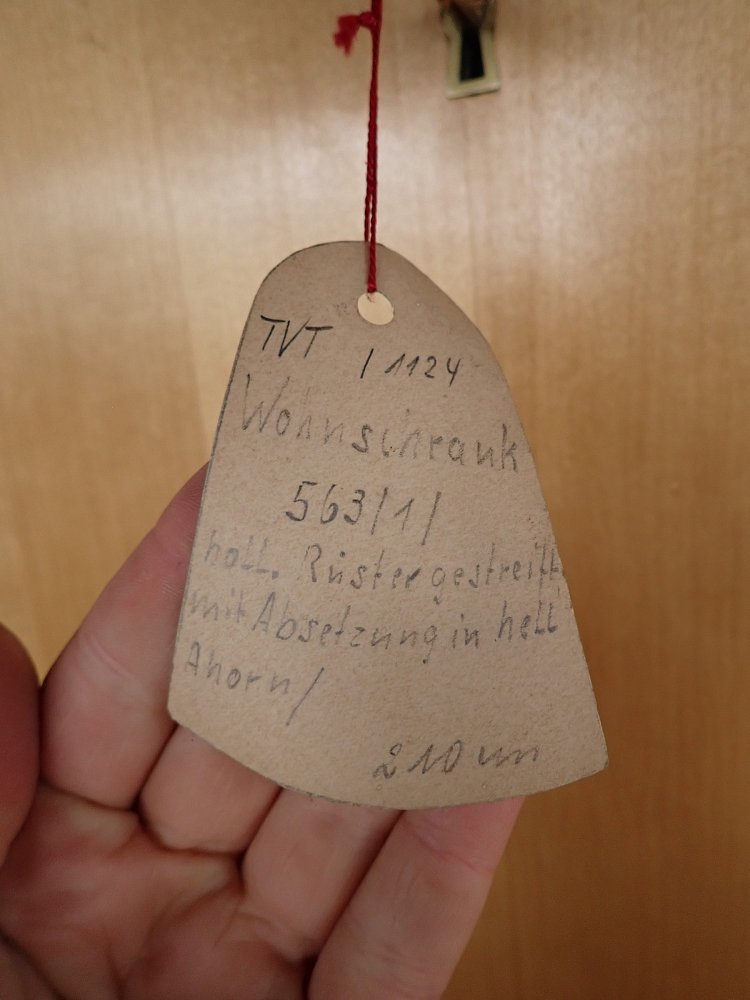 TVT / 1124
Wohnschrank
563/1/
holl. Rüster gestreift
mit Absetzung in hell
Ahorn/
210